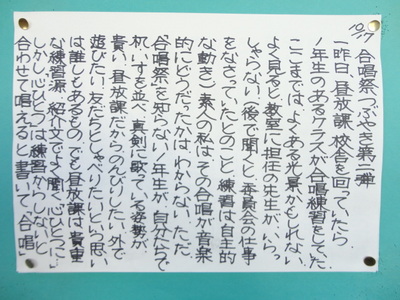 10/17
合唱祭つぶやき第二弾
一昨日、昼放課、校舎を回っていたら
1年生のあるクラスが合唱練習をしていた。
ここまでは、よくある光景かもしれない。
よく見ると教室に担任の先生が、いらっ
しゃらない(後で聞くと、委員会の仕事
をなさっていたとのこと)練習は自主的
な動き。素人の私はその合唱が音楽
的にどうだったかはわからない。ただ、
合唱祭を知らない1年生が、自分たちで
机、いすを並べ、真剣に歌っている姿勢が
貴い。昼放課だからのんびりしたい、外で
遊びたい、友だちとしゃべりたいという思い
は誰しもあるもの。でも昼放課は貴重
な練習源。紹介文でよく聞く「心ひとつに…」
しかし、心ひとつは練習からしかないと
合わせて唱えると書いて、「合唱」